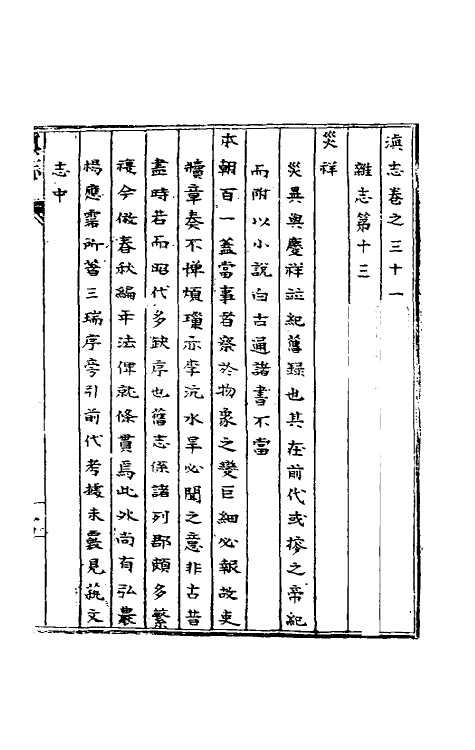 滇志卷之三十一
雜志第十三
災祥
災異與慶祥竝紀舊錄也其在前代或摭之帝紀
而附以小說白古通諸書不當
本朝百一蓋當事者察於物象之變巨細必報故吏
牘章奏不憚煩瑣亦李沆水旱必聞之意非古昔
盡時若而昭代多缺序也舊志係諸列郡頗多繁
複今倣春秋編年法俾就條貫焉此外尚有弘農
楊應霈所著三瑞序旁引前代考據未曩見藝文
志中